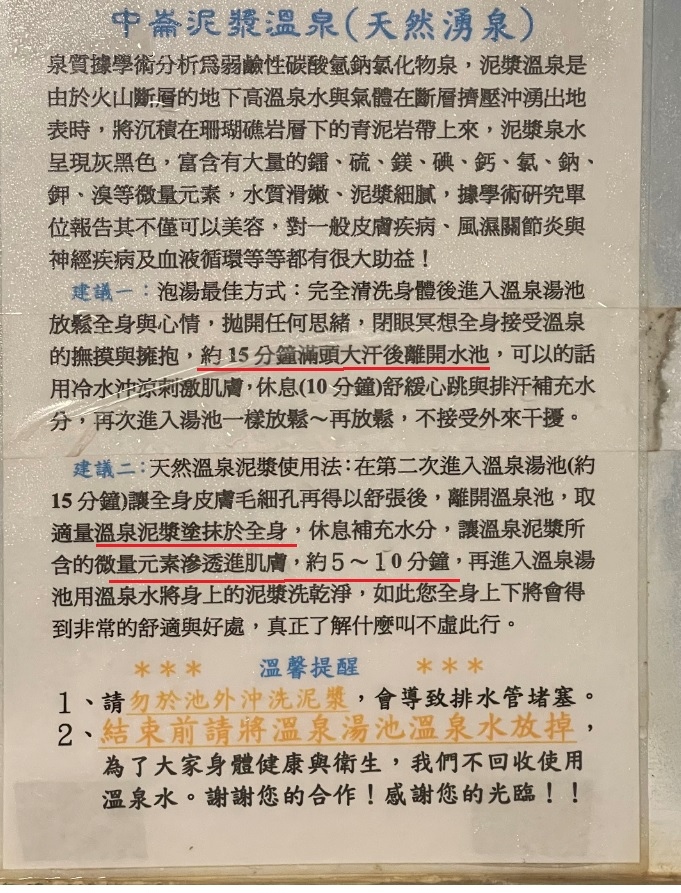 中崙泥漿溫泉(天然湧泉)
泉質據學術分析為弱鹼性碳酸氫鈉氯化物泉，泥漿溫泉是
由於火山斷層的地下高溫泉水與氣體在斷層擠壓沖湧出地
表時，將沉積在珊瑚礁岩層下的青泥岩帶上來，泥漿泉水
呈現灰黑色，富含有大量的鍿、硫、鎂、碘、鈣、氯、鈉、
鉀、溴等微量元素，水質滑嫩、泥漿細膩，據學術研究單
位報告其不僅可以美容，對一般皮膚疾病、風濕關節炎與
神經疾病及血液循環等等都有很大助益！
建議一：泡湯最佳方式：完全清洗身體後進入溫泉湯池
放鬆全身與心情，拋開任何思緒，閉眼冥想全身接受溫泉
的撫摸與擁抱，約15分鐘滿頭大汗後離開水池，可以的話
用冷水沖涼刺激肌膚，休息(10分鐘)舒緩心跳與排汗補充水
分，再次進入湯池一樣放鬆～再放鬆，不接受外來干擾。
建議二：天然溫泉泥漿使用法：在第二次進入溫泉湯池(約
15分鐘)讓全身皮膚毛細孔再得以舒張後，離開溫泉池，取
適量溫泉泥漿塗抹於全身，休息補充水分，讓溫泉泥漿所
含的微量元素滲透進肌膚，約５～１0分鐘，再進入溫泉湯
池用溫泉水將身上的泥漿洗乾淨，如此您全身上下將會得
到非常的舒適與好處，真正了解什麼叫不虛此行。
＊＊＊ 溫馨提醒 ＊＊＊
１、請勿於池外沖洗泥漿，會導致排水管堵塞。
２、結束前請將溫泉湯池溫泉水放掉，
為了大家身體健康與衛生，我們不回收使用
溫泉水。謝謝您的合作！感謝您的光臨！！